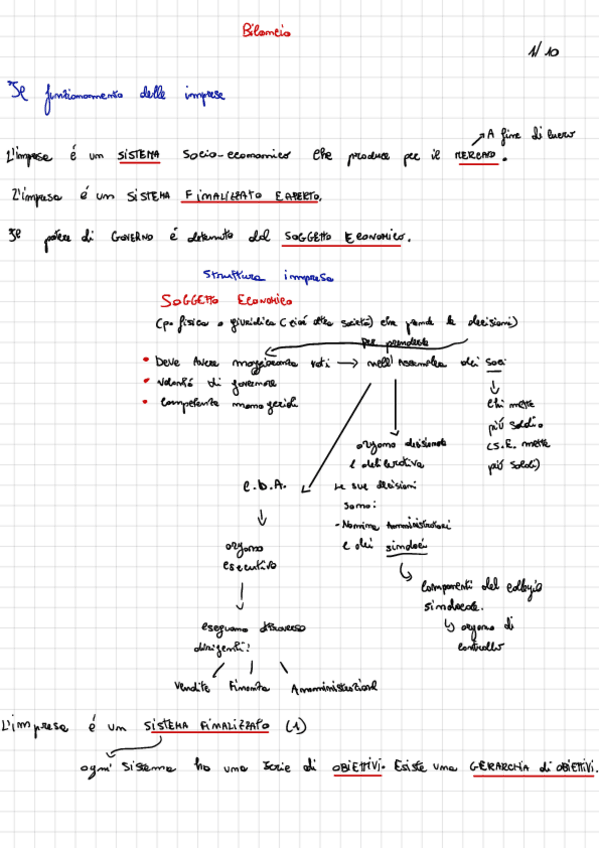 Bilancio
1/10
Il funzionamento delle imprese
A fine di lucro
L'impresa é um SISTEMA Socio-economico che produce per il MERCATO.
L'impresa é um SISTEMA FIMALIZZATO E APERTO.
Il potere di GOVERNO é determinato dal SOGGETTO ECONOMICO.
Struttura impresa
SOGGETTO ECONOMICO
(pa fisica o giuridica (cioé altra società) che prende le decisioni)
per prenderle
• Deve Avere maggioranza voti → nell'assemblea dei soci
• Volontà di governare
• Competenze manageriali
Chi mette
più soldi.
(S.E. mette
più soldi)
organo decisionale
e deliberativo
le sue decisioni
sono:
- Nomina Amministratori
e dei simdaci
C.D.A.
organo
esecutivo
Componenti del collegio
simdacale.
↳ organo di
controllo
eseguono attraverso
dirigenti:
Vendite Fimanza Ammministrazione
L'impresa é um SISTEMA FIMALIZZATO (1)
ogni sistema ha uma serie di OBIETTIVI. Esiste uma GERARCHIA di OBIETTIVI.